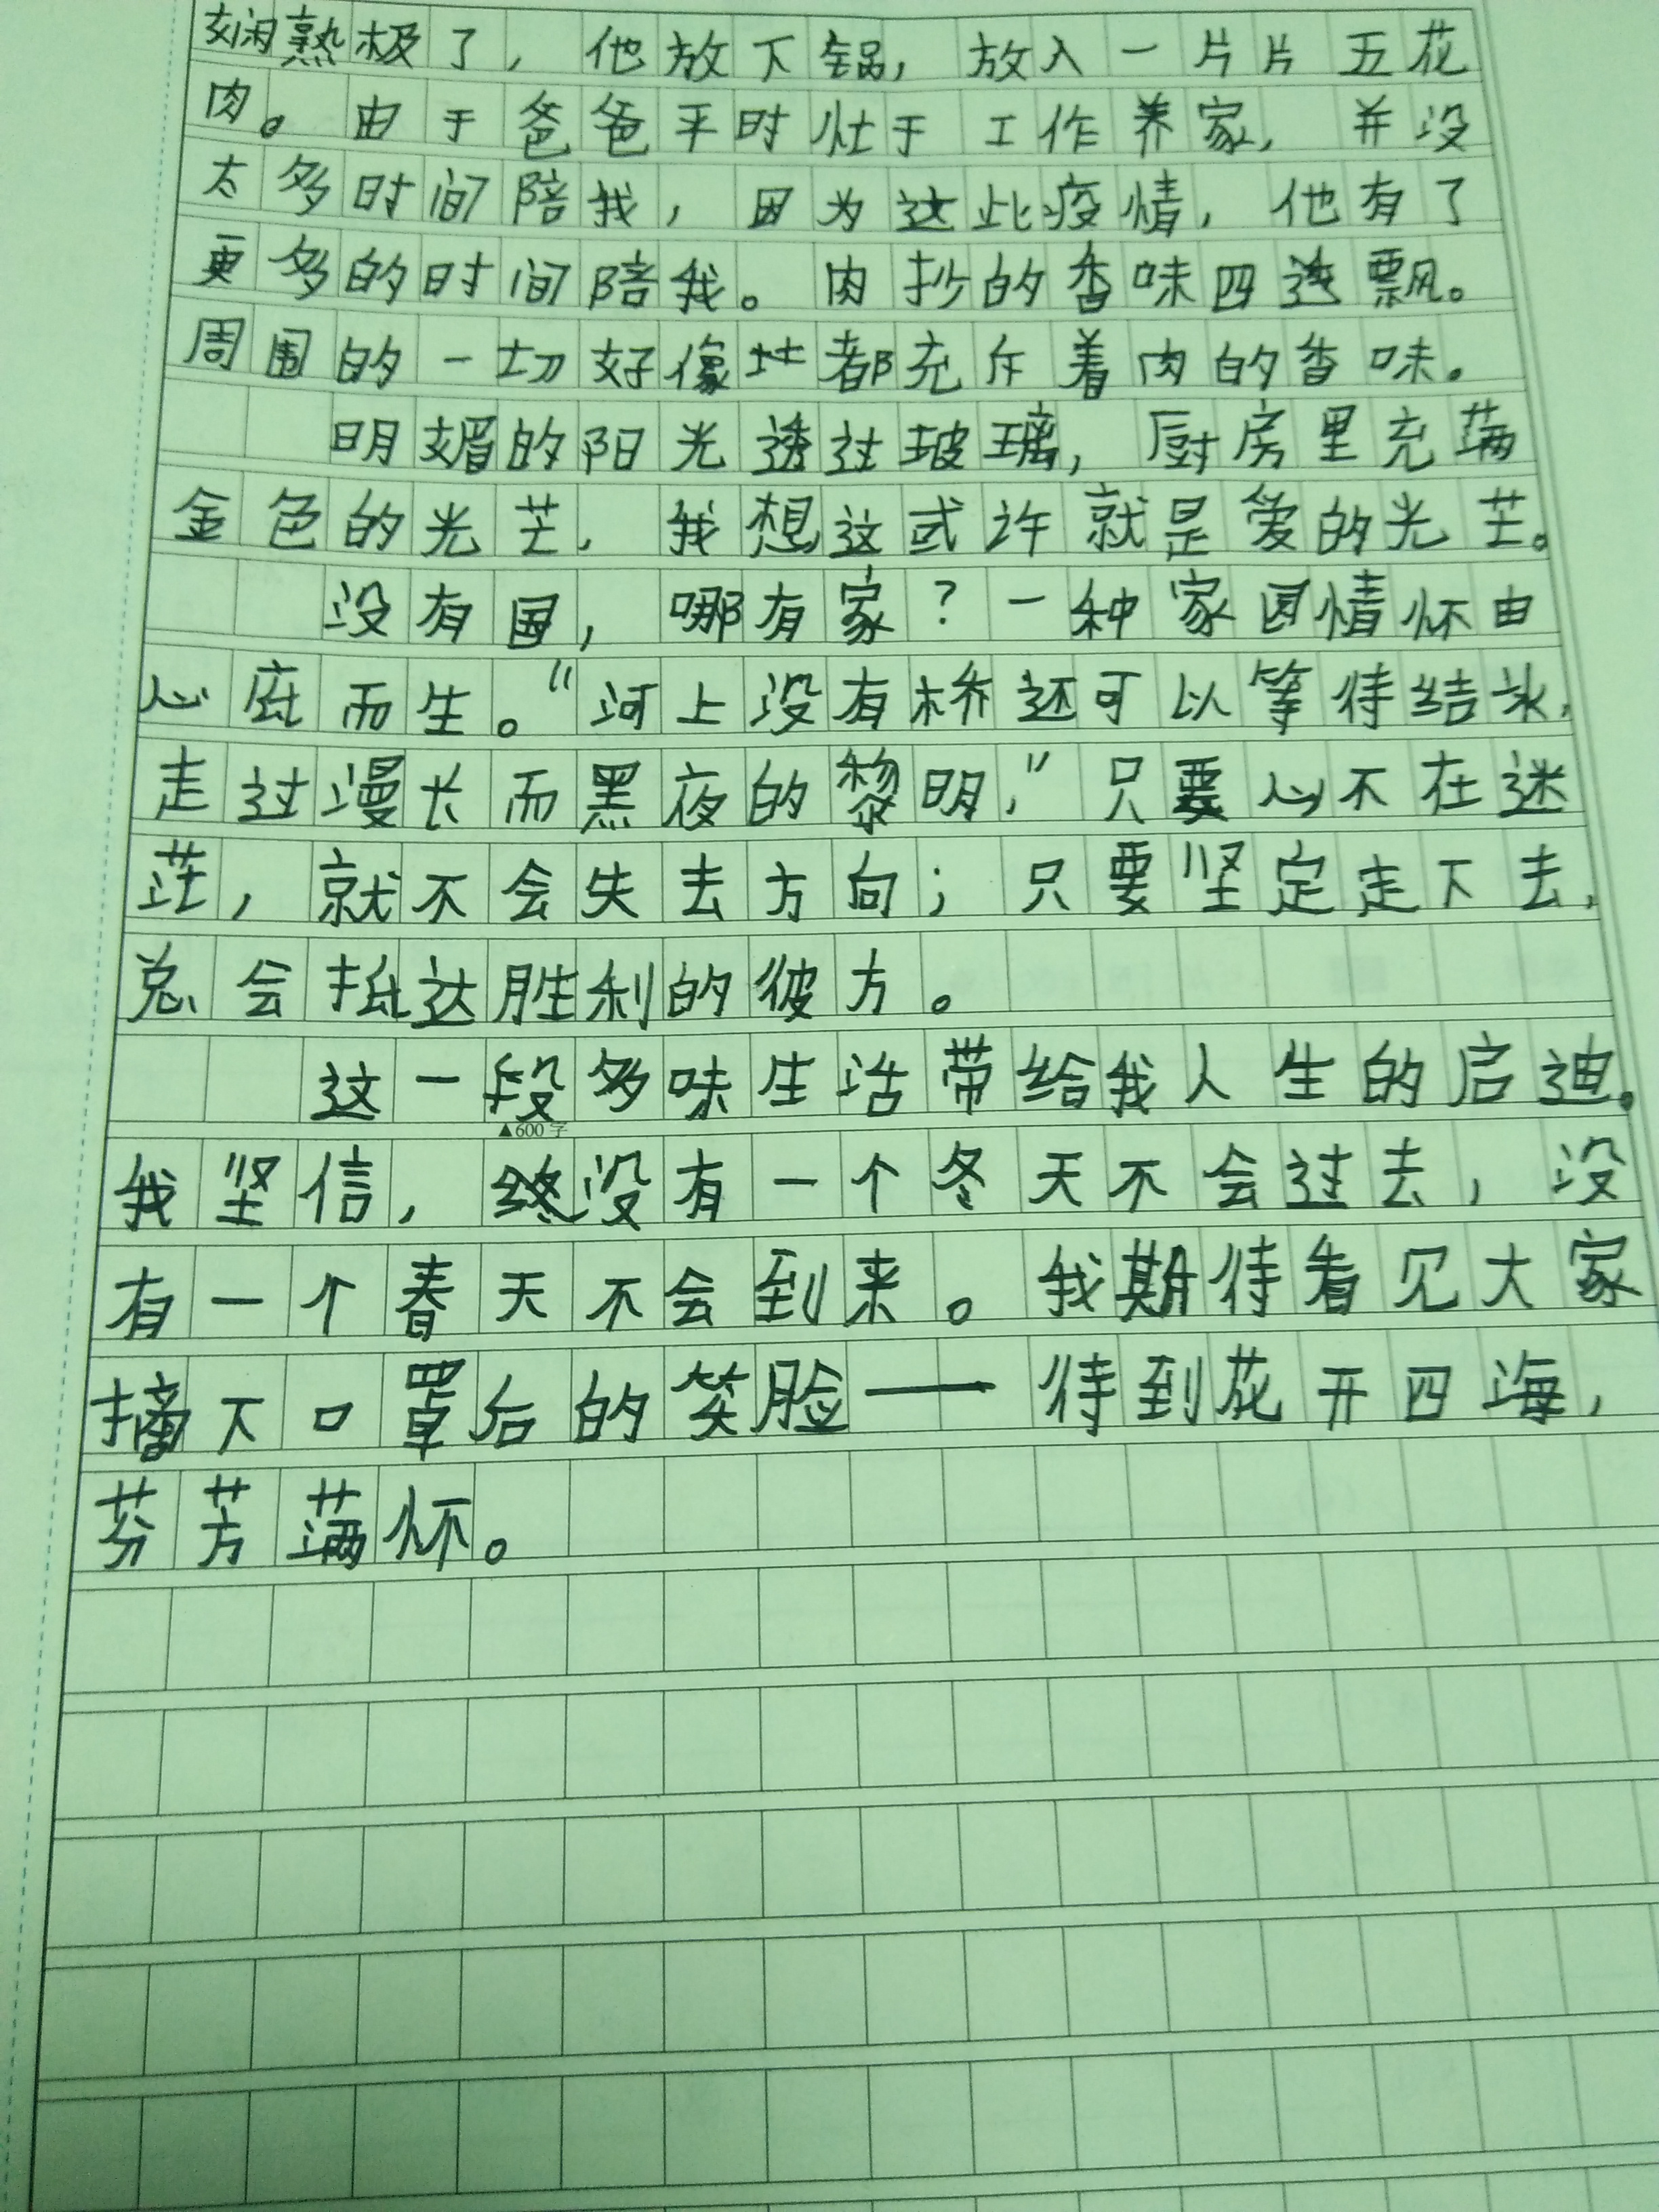 娴熟极了，他放下锅，放入一片片五花
肉。由于爸爸平时忙于工作养家，并没
太多时间陪我，因为这此疫情，他有了
更多的时间陪我。肉抄的香味四逸飘。
周围的一切好像地都充斥着肉的香味。
明媚的阳光透过玻璃，厨房里充满
金色的光芒，我想这或许就是爱的光芒。
没有国，哪有家？一种家国情怀由
心底而生。“河上没有桥还可以等待结冰，
走过漫长而黑夜的黎明，”只要心不在迷
茫，就不会失去方向；只要坚定走下去，
总会抵达胜利的彼方。
这一段多味生活带给我人生的启迪。
▲600字
我坚信，终没有一个冬天不会过去，没
有一个春天不会到来。我期待看见大家
摘下口罩后的笑脸——待到花开四海，
芬芳满怀。